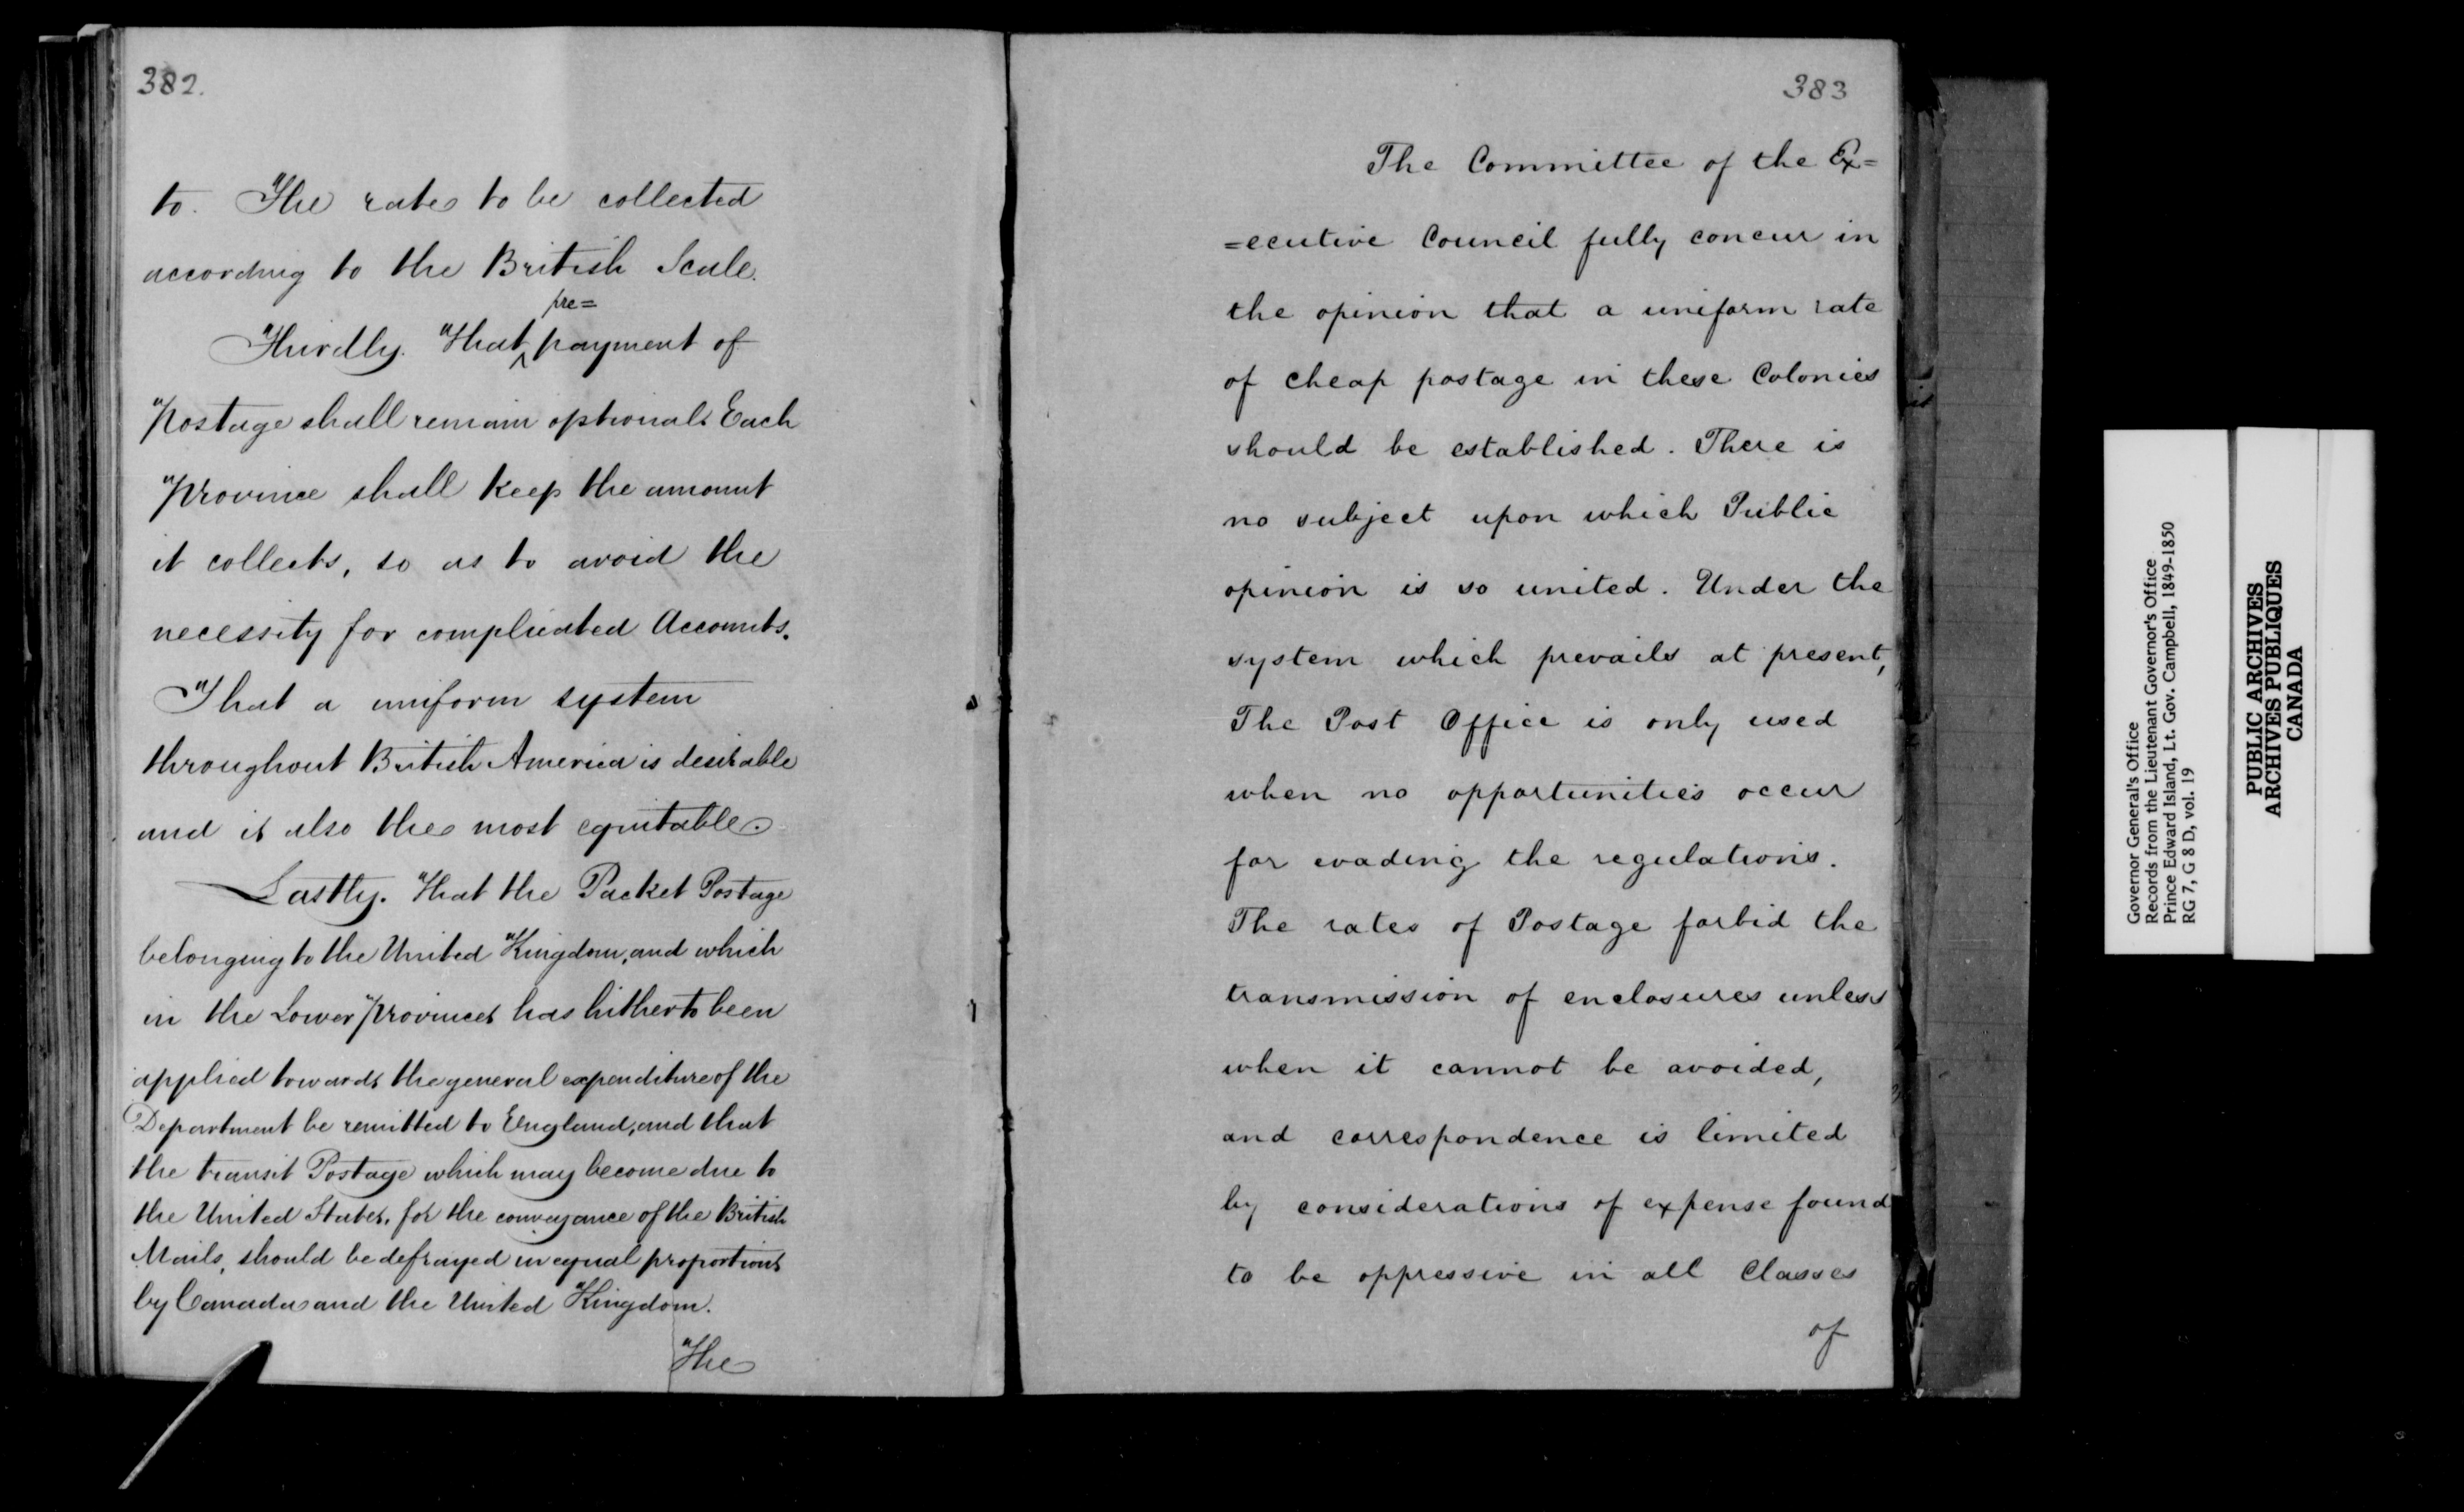 382.
to. The rates to be collected
according to the British Scale.
pre=
Thirdly. That ^ payment of
Postage shall remain optional & Each
Province shall keep the amount
it collects, so as to avoid the
necessity for complicated Accounts.
That a uniform system
throughout British America is desirable
and is also the most equitable.
Lastly. That the Packet Postage
belonging to the United Kingdom, and which
in the Lower Provinces has hitherto been
applied towards the general expenditure of the
Department be remitted to England, and that
the transit Postage which may become due to
the United States, for the conveyance of the British
Mails, should be defrayed in equal proportions
by Canada and the United Kingdom.
The
383
The Committee of the Ex=
=ecutive Council fully concur in
the opinion that a uniform rate
of cheap postage in these Colonies
should be established. There is
no subject upon which Public
opinion is so united. Under the
system which prevails at present,
The Post Office is only used
when no opportunities occur
for evading the regulations.
The rates of Postage forbid the
transmission of enclosures unless
when it cannot be avoided,
and correspondence is limited
by considerations of expense found
to be oppressive in all Classes
of
Governor General's Office
Records from the Lieutenant Governor's Office
Prince Edward Island, Lt. Gov. Campbell, 1849-1850
RG 7, G 8 D, vol. 19
PUBLIC ARCHIVES
ARCHIVES PUBLIQUES
CANADA